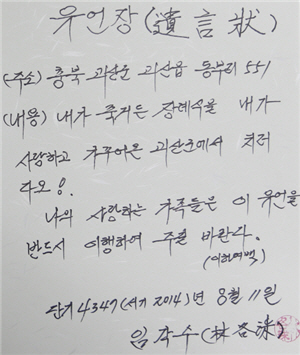 유언장(遺言狀)
(주소) 충북 괴산군 괴산읍 동부리 551
(내용) 내가 죽거든 장례식을 내가
사랑하고 가꾸어온 괴산군에서 치러
다오!
나의 사랑하는 가족들은 이 유언을
반드시 이행하여 주길 바란다.
(이하여백)
단기 4347(서기 2014)년 8월 11일
임각수(林各洙)